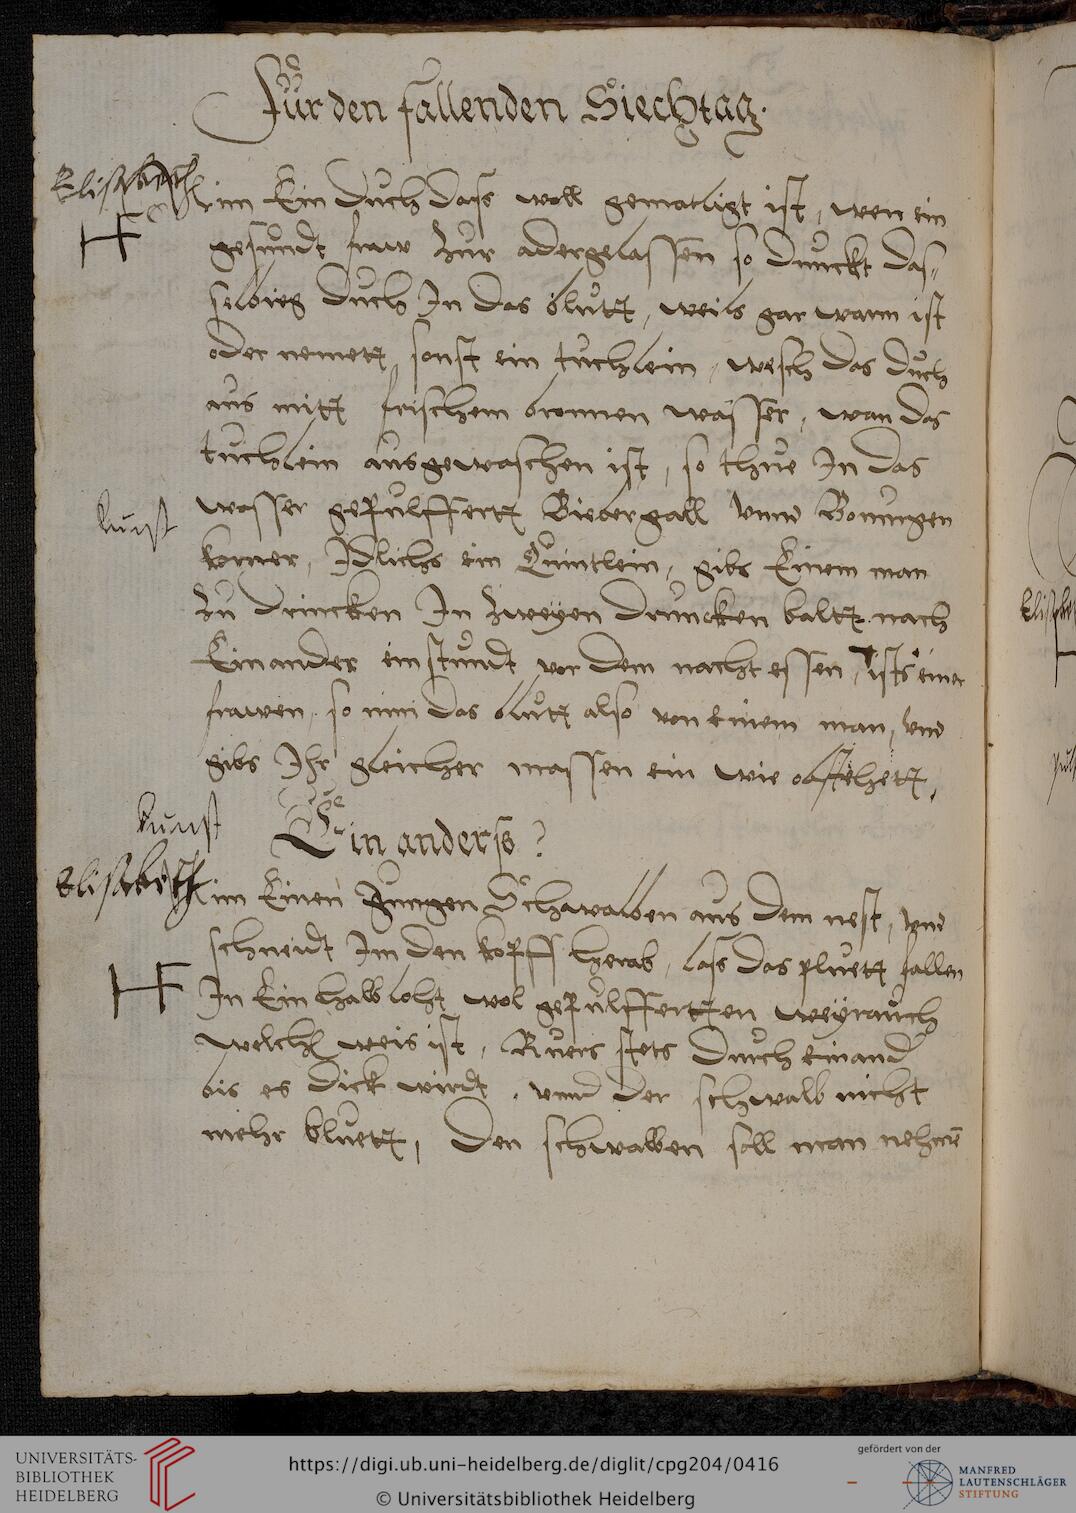 Für den fallenden Siechtag.
Elisabeth
Nim Ein Duch dass woll genatligt ist, wen ein
gesundt fraw zur adergelassen so dunckt das-
selbieg Duch In das blutt, weils gar warm ist
oder nemett sonst ein tuchlein, wesch das Duch
aus mitt frischem bronnen wasser, wan das
tuchlein ausgewaschen ist, so thue In das
kunst
wasser gepulffertt Biebergall vnnd Bonungen
korner, Idlichs ein Quintlein, gibs Einem man
zu drincken In zweyen druncken baltt nach
Einander ein stundt vor dem nacht essen, ists einer
frawen so nim das blutt also von einem man, vnd
gibs Ihr gleicher massen ein wie obstehett,
kunst
Ein anderss
Elisabeth
Nim Einen Jungen Schwalben aus dem nest, vnd
schneidt Im den kopff herab, lass das pluett fallen
In Ein halb loht wol gepulffertten weyrauch
welcher weis ist, Ruers stets durch einand
bis es dick wirdt, vnnd der schwalb nicht
mehr bluett, Den schwalben soll man nehmen
UNIVERSITÄTS-
BIBLIOTHEK
HEIDELBERG
https://digi.ub.uni-heidelberg.de/diglit/cpg204/0416
© Universitätsbibliothek Heidelberg
gefördert von der
MANFRED
LAUTENSCHLÄGER
STIFTUNG